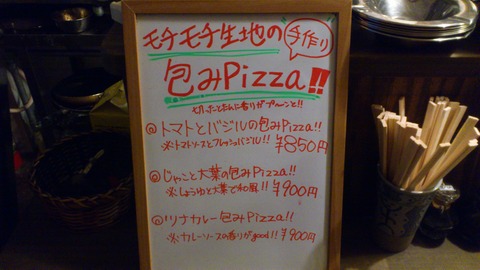 モチモチ生地の
手作り
包みPizza!!
切ったとたんに香りがプ〜ンと!!
◎トマトとバジルの包みPizza!!
※トマトソースとフレッシュバジル!! ¥850円
◎じゃこと大葉の包みPizza!!
※しょうゆと大葉で和風!! ¥900円
◎ツナカレー包みPizza!!
※カレーソースの香りがgood!! ¥900円